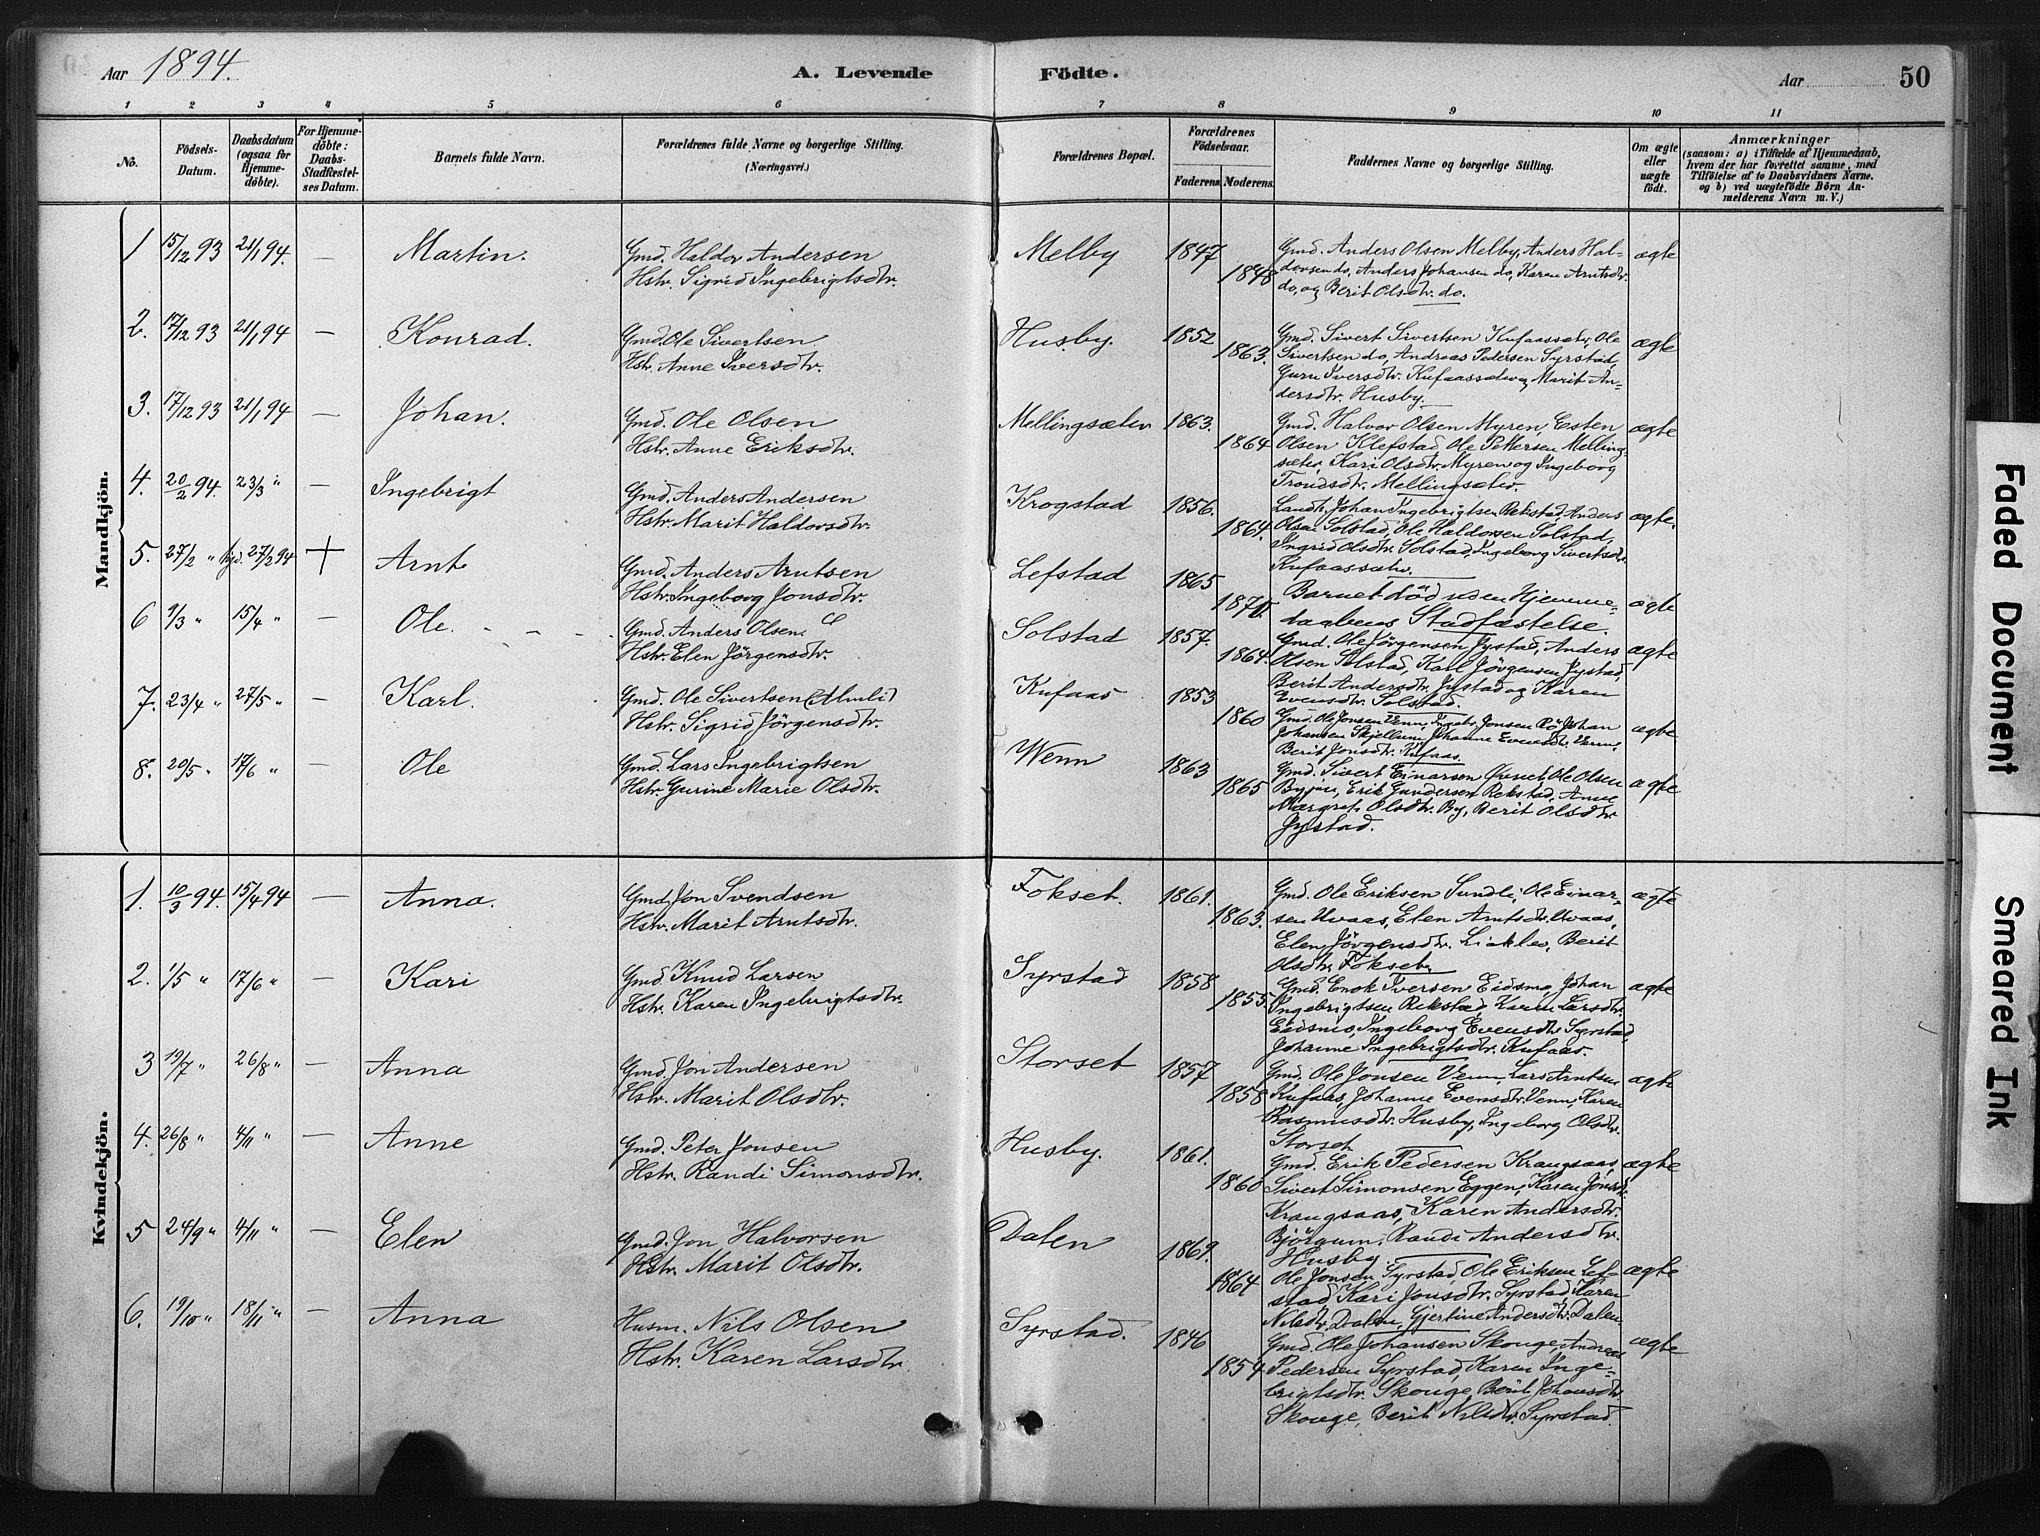 Aar 1894.
A. Levende Födte.
Aar
50
1 2 3 4 5 6 7 8 9 10 11
No.
Födsels-Datum.
Daabsdatum (ogsaa for Hjemme-döbte).
For Hjemme-döbte: Daabs-Stadfæstel-ses Datum.
Barnets fulde Navn.
Forældrenes fulde Navne og borgerlige Stilling.
(Næringsvei.)
Forældrenes Bopæl.
Forældrenes Födselsaar.
Faderens Moderens.
Faddernes Navne og borgerlige Stilling.
Om ægte eller uægte födt.
Anmærkninger
(saasom: a) i Tilfælde af Hjemmedaab, hvem der har forrettet samme, med Tilföielse af to Daabsvidners Navne. og b) ved uægtefödte Börn An-melderens Navn m. V.)
Mandkjön.
1 15/12 93 21/1 94. — Martin. Gmd. Haldor Andersen Melby 1847 Gmd. Anders Olsen Melby, Anders Hal- ægte
Hstr. Sigrid Ingebrigtsdtr. 1848 dorsen do, Anders Johansen do, Karen Arntsdtr.
do, og Berit Olsdtr. do.
2. 17/12 93 21/1 94 — Konrad. Gmd. Ole Sivertsen Husby. 1852 Gmd. Sivert Sivertsen Kufaassæter, Ole ægte
Hstr. Anne Iversdtr. 1863. Sivertsen do, Andreas Pedersen Syrstad,
Guru Iversdtr. Kufaassæter og Marit An-
dersdtr. Husby.
3. 17/12 93 21/1 94 — Johan. Gmd. Ole Olsen Mellingsæter 1863. Gmd. Halvor Olsen Myren, Esten ægte
Hstr. Anne Eriksdtr. 1864 Olsen Klefstad, Ole Pettersen Melling-
sæter, Kari Olsdtr. Myren og Ingeborg
Trondsdtr. Mellingsæter.
4. 20/2 94. 23/3 " — Ingebrigt Gmd. Anders Andersen Krogstad 1856. Landh. Johan Ingebrigtsen Rekstad, Anders ægte.
Hstr. Marit Haldorsdtr. 1864. Olsen Solstad, Ole Haldorsen Solstad,
Ingrid Olsdtr. Solstad, Ingeborg Sivertsdtr.
Kufaassæter.
5. 27/2 " hjd. 27/2 94 + Arnt Gmd. Anders Arntsen Lefstad 1865 Barnet død uden Hjemme- ægte
Hstr. Ingeborg Jonsdtr. daabens Stadfæstelse.
6 9/3 " 15/4 " — Ole. Gmd. Anders Olsen. Solstad 1857. Gmd. Ole Jörgensen Jystad, Anders ægte
Hstr. Elen Jörgensdtr. 1864. Olsen Solstad, Karl Jörgensen Jystad,
Berit Andersdtr. Jystad og Karen
Evensdtr. Solstad.
7. 23/4 " 27/5 " — Karl. Gmd. Ole Sivertsen (Almli) Kufaas 1853 Gmd. Ole Jonsen Venn, Ingebr. Jonsen Rö, Johan ægte
Hstr. Sigrid Jörgensdtr. 1860 Johansen Skjellum, Johanne Evensdtr. Venn,
Berit Jonsdtr. Kufaas.
8. 20/5 " 17/6 " — Ole Gmd. Lars Ingebrigtsen Wenn 1863 Gmd. Sivert Einarsen Övnet, Ole Olsen ægte
Hstr. Gurine Marie Olsdtr. 1865 Erik Gundersen Rekstad, Anne
Margret Olsdtr. By, Berit Olsdtr
Jystad.
Kvindekjön.
1. 10/3 94. 15/4 94 — Anna. Gmd. Jon Svendsen Fokset. 1861. Gmd. Ole Eriksen Sundli, Ole Einar- ægte
Hstr. Marit Arntsdtr. 1863. sen Uvaas, Elen Arntsdtr. Uvaas,
Elen Jörgensdtr. Liaklev, Berit
Olsdtr. Fokset.
2. 1/5 " 17/6 " — Kari Gmd. Knud Larsen Syrstad 1858 Gmd. Enok Iversen Eidsmo, Johan ægte
Hstr. Karen Ingebrigtsdtr. 1855 Ingebrigtsen Rekstad, Karen Larsdtr.
Eidsmo, Ingeborg Evensdtr. Syrstad,
Johanne Ingebrigtsdtr. Kufaas.
3 19/7 " 26/8 " — Anna Gmd. Jon Andersen Storset 1857 Gmd. Ole Jonsen Venn, Lars Arntsen ægte
Hstr. Marit Olsdtr. 1858 Kufaas, Johanne Evensdtr. Venn, Karen
Rasmusdtr. Husby, Ingeborg Olsdtr.
Storset.
4. 26/8 " 4/11 " — Anne Gmd. Peter Jonsen Husby. 1861. Gmd. Erik Pedersen Krangsaas, ægte
Hstr. Randi Simonsdtr. 1860 Sivert Simonsen Eggen, Karen Jonsdtr.
Krangsaas, Karen Andersdtr.
Björgum, Randi Andersdtr.
Husby.
5 24/9 " 4/11 " — Elen Gmd. Jon Halvorsen Dalen 1869. Ole Jonsen Syrstad, Ole Eriksen Lef- ægte
Hstr. Marit Olsdtr. 1864 stad, Kari Jonsdtr. Syrstad, Karen
Nilsdtr. Dalen, Gjertine Andersdtr. Dalen.
6. 19/10 " 18/11 " — Anna Husm. Nils Olsen Syrstad. 1846 Gmd. Ole Johansen Skouge, Andreas ægte
Hstr. Karen Larsdtr. 1854 Pedersen Syrstad, Karen Inge-
brigtsdtr. Skouge, Berit Johansdtr.
Skouge, Berit Nilsdtr. Syrstad.
Faded Document
Smeared Ink